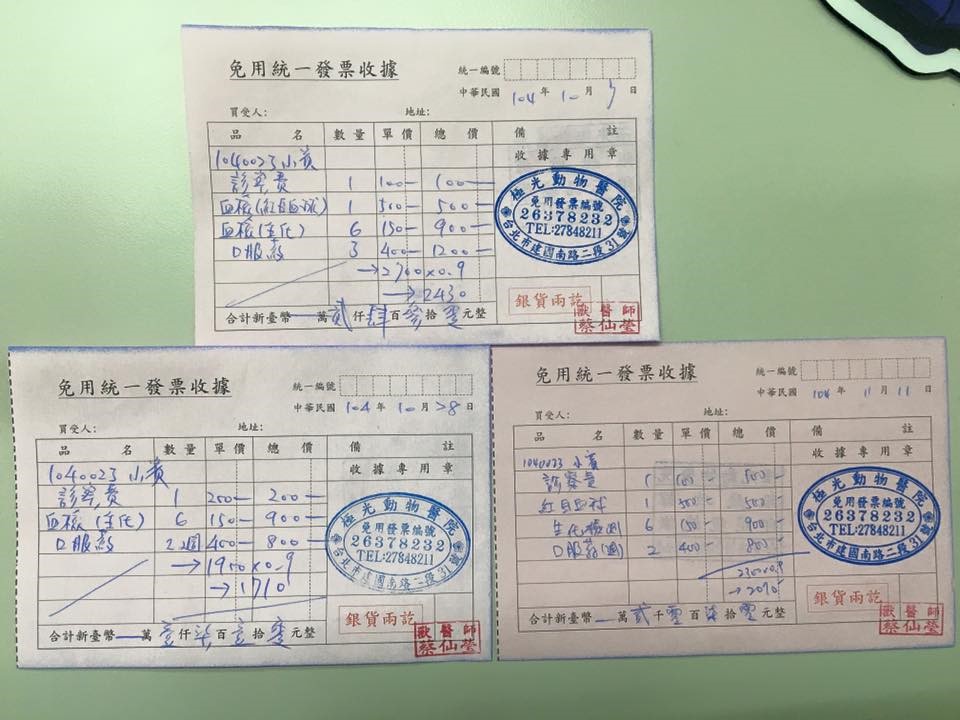 免用統一發票收據
統一編號
中華民國 104 年 10 月 7 日
買受人: 地址:
品名 數量 單價 總價 備註
收據專用章
1040023 小黃
診察費 1 100- 100-
血檢(紅白血球) 1 500- 500-
血檢(生化) 6 150- 900-
口服藥 3 400- 1200-
→2700×0.9
→2430
合計新臺幣 萬貳仟肆百參拾零元整
極光動物醫院
免用發票編號
26378232
TEL:27848211
台北市建國南路二段31號
銀貨兩訖
獸醫師
蔡仙瑩
免用統一發票收據
統一編號
中華民國 104 年 10 月 28 日
買受人: 地址:
品名 數量 單價 總價 備註
收據專用章
1040023 小黃
診察費 1 200- 200-
血檢(生化) 6 150- 900-
口服藥 2週 400- 800-
→1900×0.9
→1710
合計新臺幣 萬壹仟柒百壹拾零元整
極光動物醫院
免用發票編號
26378232
TEL:27848211
台北市建國南路二段31號
銀貨兩訖
獸醫師
蔡仙瑩
免用統一發票收據
統一編號
中華民國 104 年 11 月 11 日
買受人: 地址:
品名 數量 單價 總價 備註
收據專用章
1040023 小黃
診察費 1 100-
紅白血球 1 500- 500-
生化 6 150- 900-
口服藥(週) 2 400- 800-
2300×0.9
→2070
合計新臺幣 萬貳千零百柒拾零元整
極光動物醫院
免用發票編號
26378232
TEL:27848211
台北市建國南路二段31號
銀貨兩訖
獸醫師
蔡仙瑩